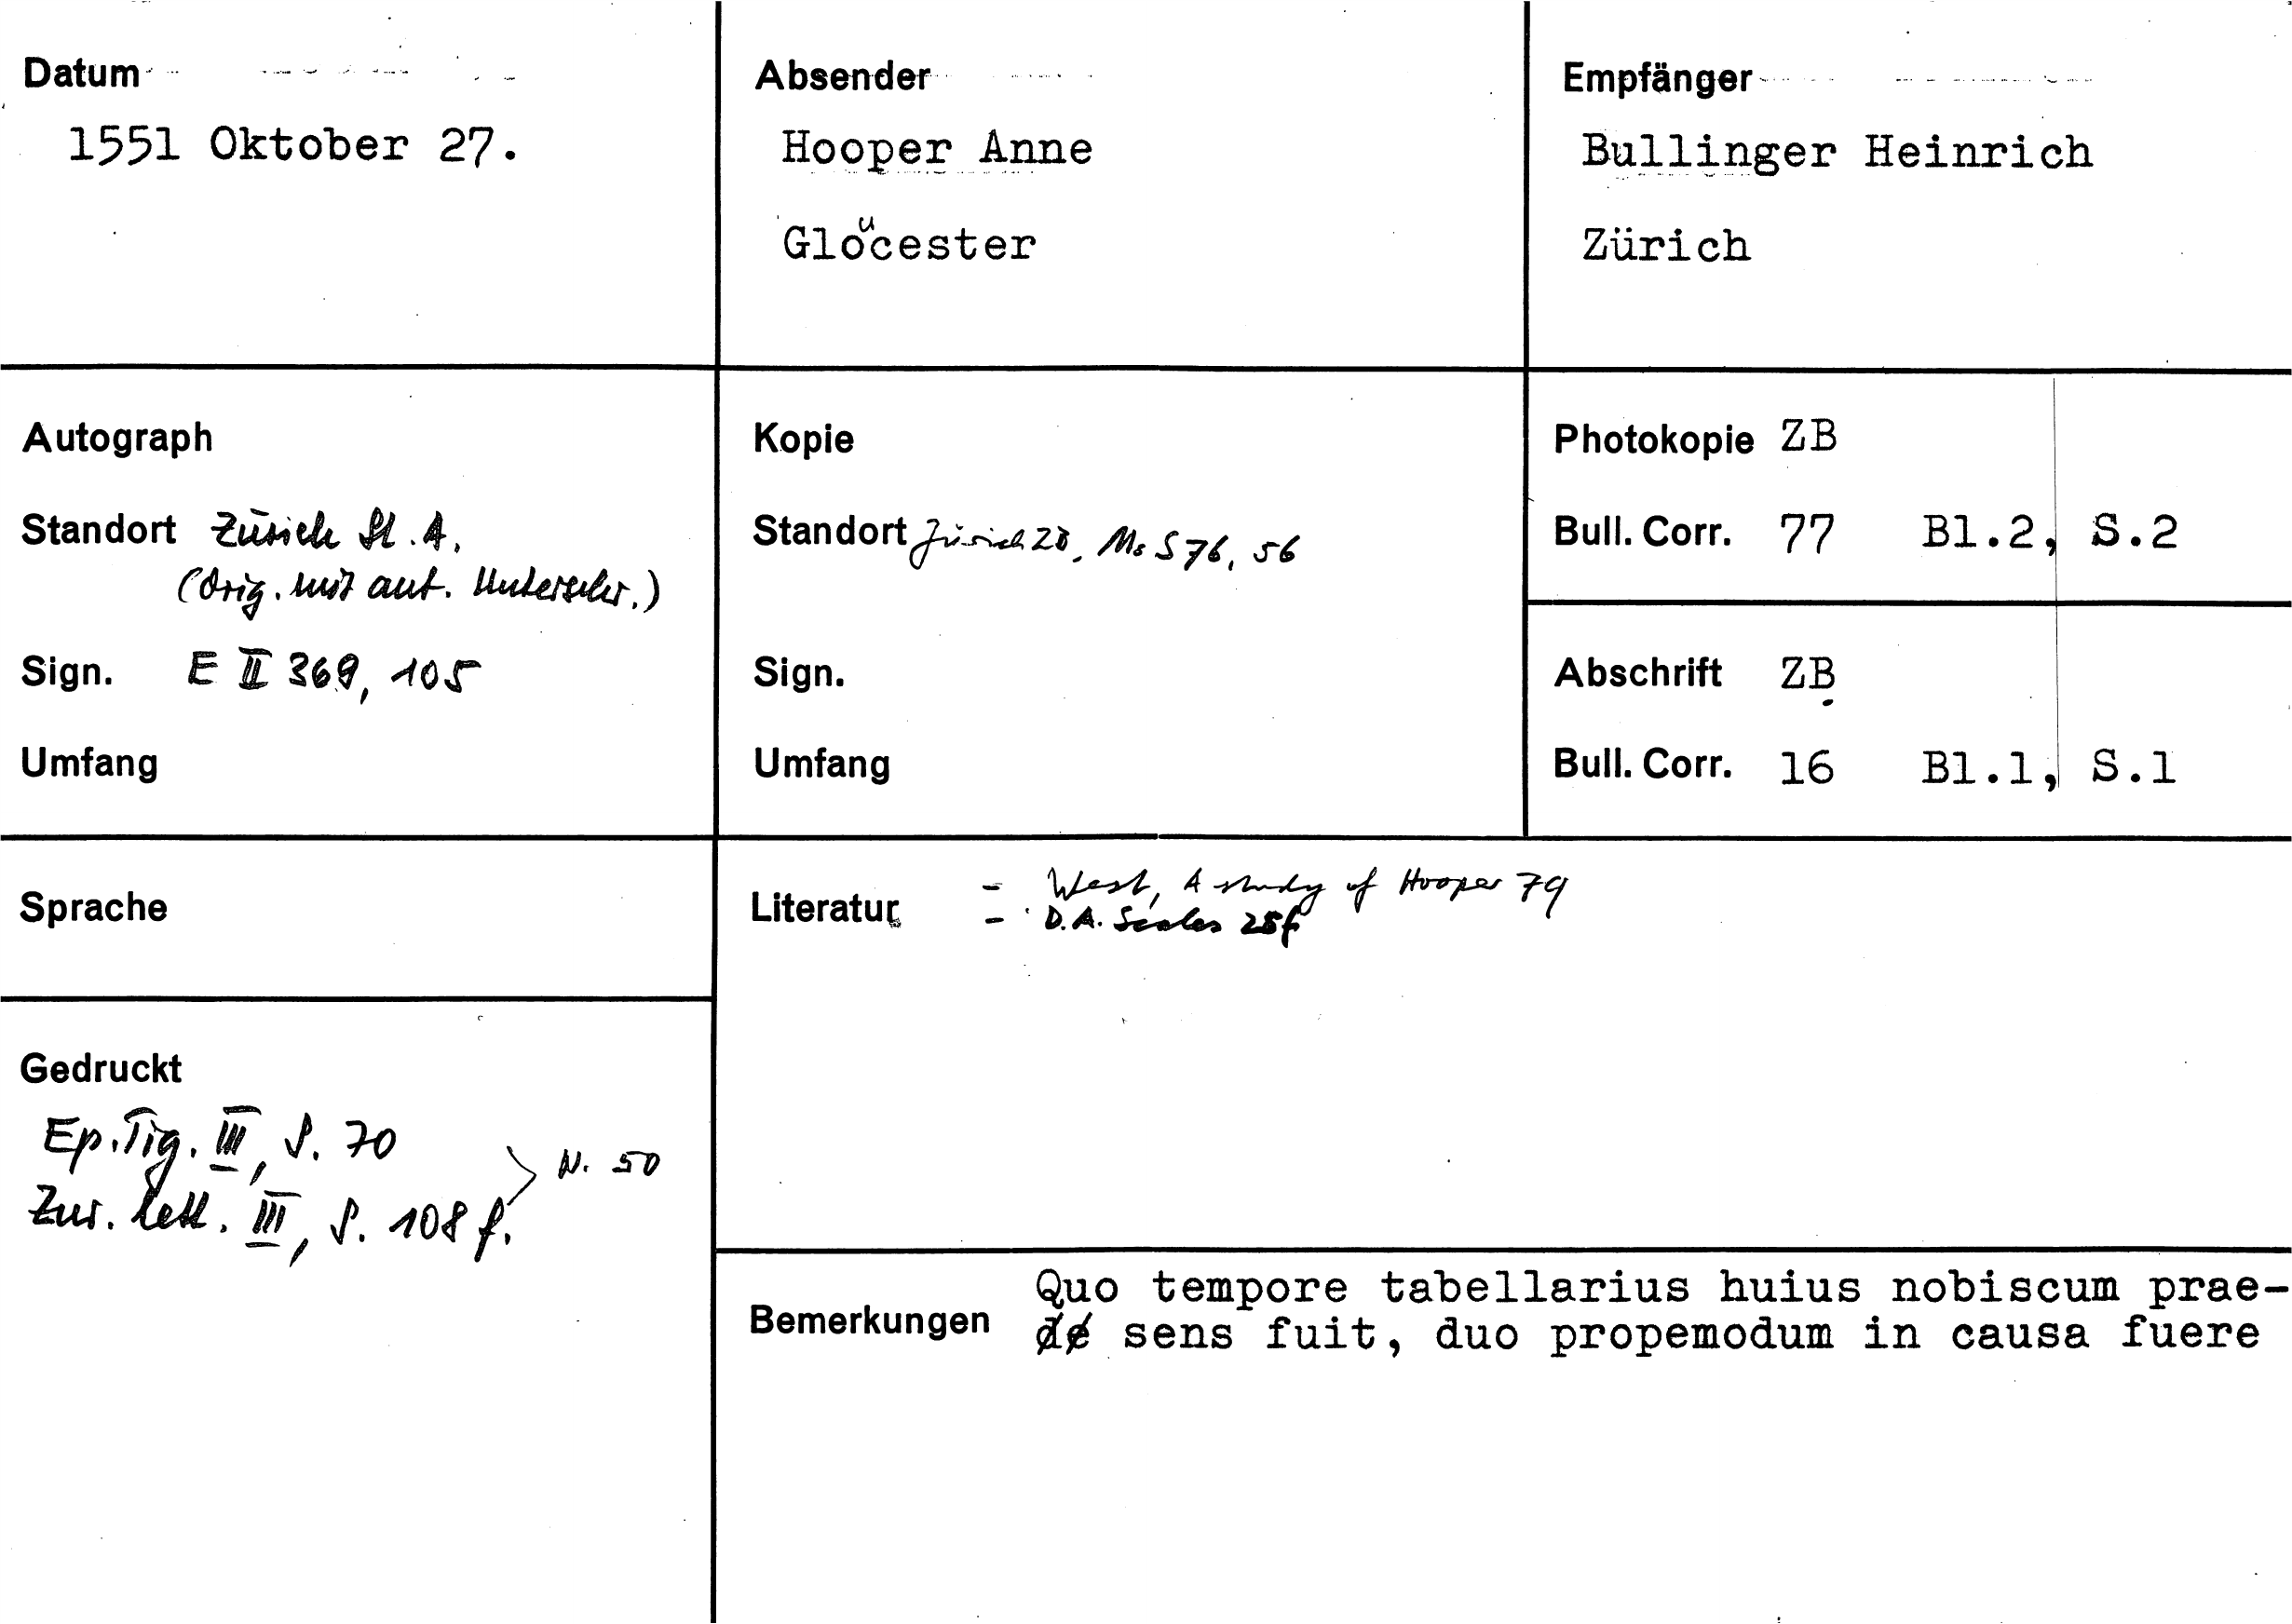 Datum
1551 Oktober 27.
Absender
Hooper Anne
Gloucester
Empfänger
Bullinger Heinrich
Zürich
Autograph
Standort Zürich St. A.
(Orig. mit aut. Unterschr.)
Sign. E II 369, 105
Umfang
Kopie
Standort Zürich ZB, Ms S 76, 56
Sign.
Umfang
Photokopie ZB
Bull. Corr. 77 Bl.2, S.2
Abschrift ZB
Bull. Corr. 16 Bl.1, S.1
Sprache
Literatur - West, A study of Hooper 79
- D.A. Scales 25f
Gedruckt
Ep. Tig. III, S. 70
Zur. lett. III, S. 108 f.
N. 50
Bemerkungen
Quo tempore tabellarius huius nobiscum prae-
sens fuit, duo propemodum in causa fuere